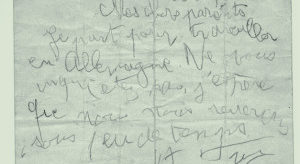 Mes chers parents
je part pour travailler
en Allemagne Ne vous
inquietez pas j'espere
que nous nous reverrons
sous peu de temps